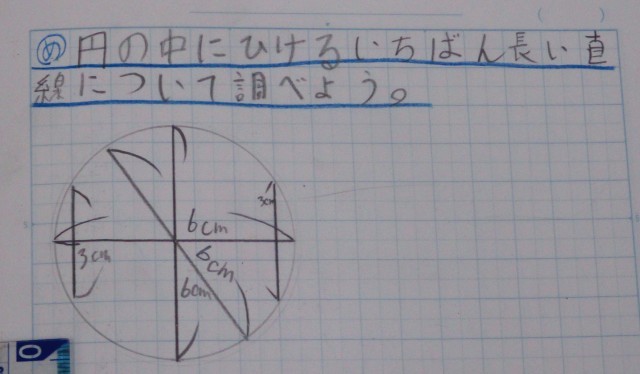 め 円の中にひけるいちばん長い直
線について調べよう。
3cm
6cm
3cm
6cm
6cm
0